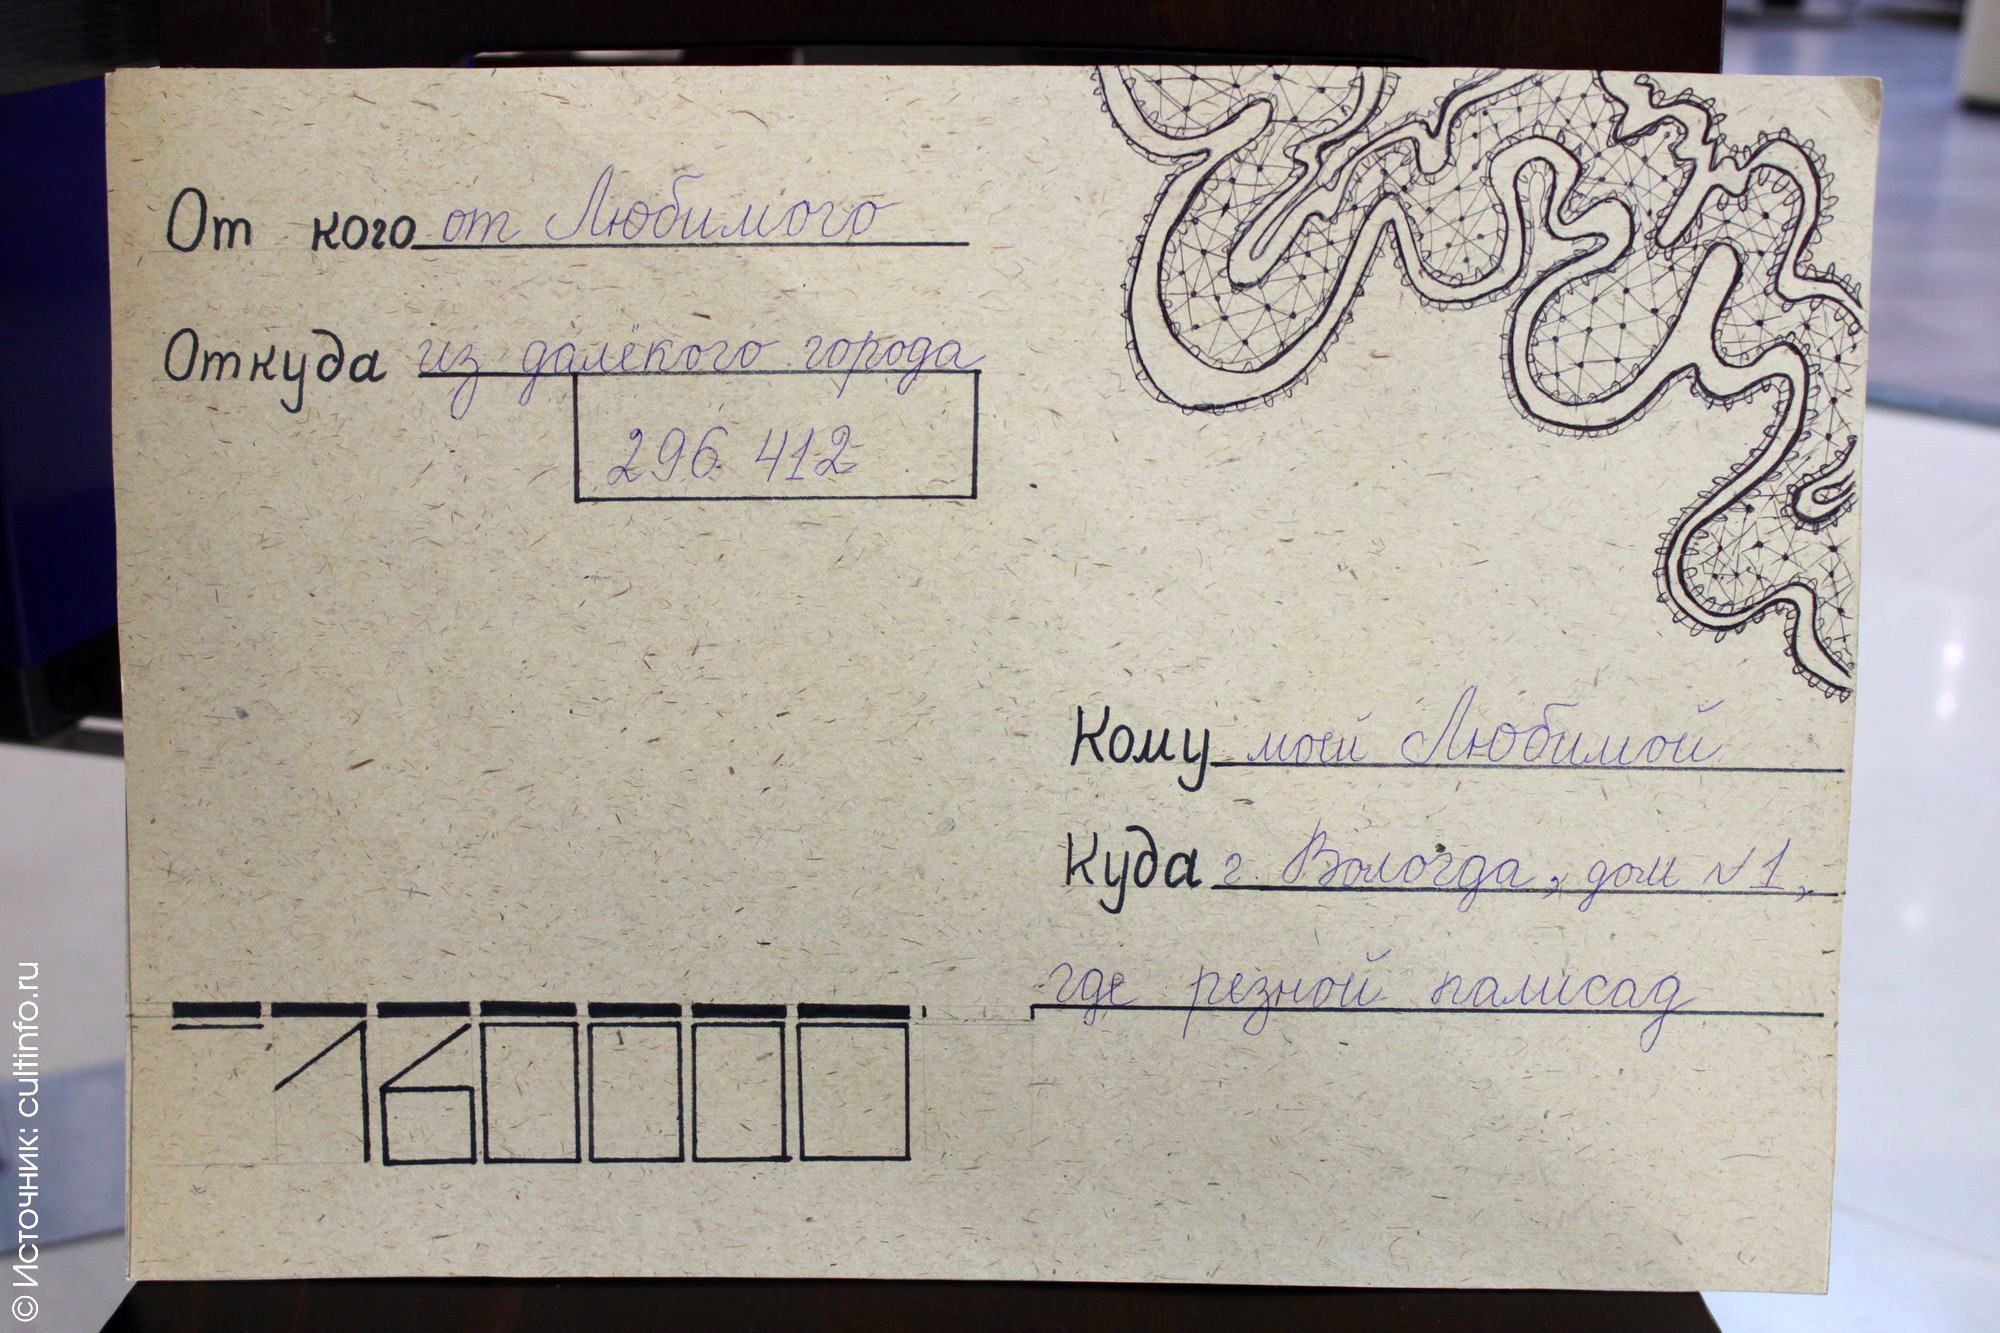 От кого от Любимого
Откуда из далёкого города
296 412
Кому моей Любимой
Куда г. Вологда, дом №1,
где резной палисад
160000
© Источник: cultinfo.ru